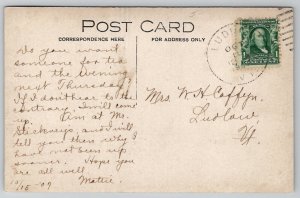 POST CARD
CORRESPONDENCE HERE
FOR ADDRESS ONLY
Do you want
someone for tea
and the evening
next Thursday?
If I don't hear to the
contrary, I will come
up. Am at Mr.
Stickneys, and will
tell you then why I
have not been up
sooner. Hope you
are all well
Mattie.
10/15 - 07
LUDL
VT
Mrs. W. H. Caffyn,
Ludlow,
Vt.